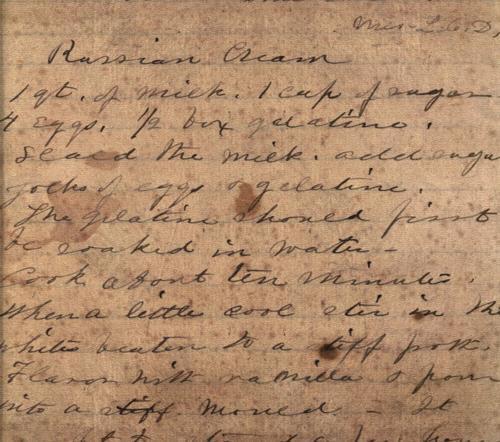 Mrs. L. C. D.
Russian Cream
1 qt. of milk. 1 cup of sugar
4 eggs. 1/2 box gelatine.
Scald the milk. add suga
yocks of eggs & gelatine.
The gelatine should first
be soaked in water -
Cook about ten minutes.
When a little cool stir in the
whites beaten to a stiff froth.
Flavor with vanilla & pour
into a stiff mould. - It